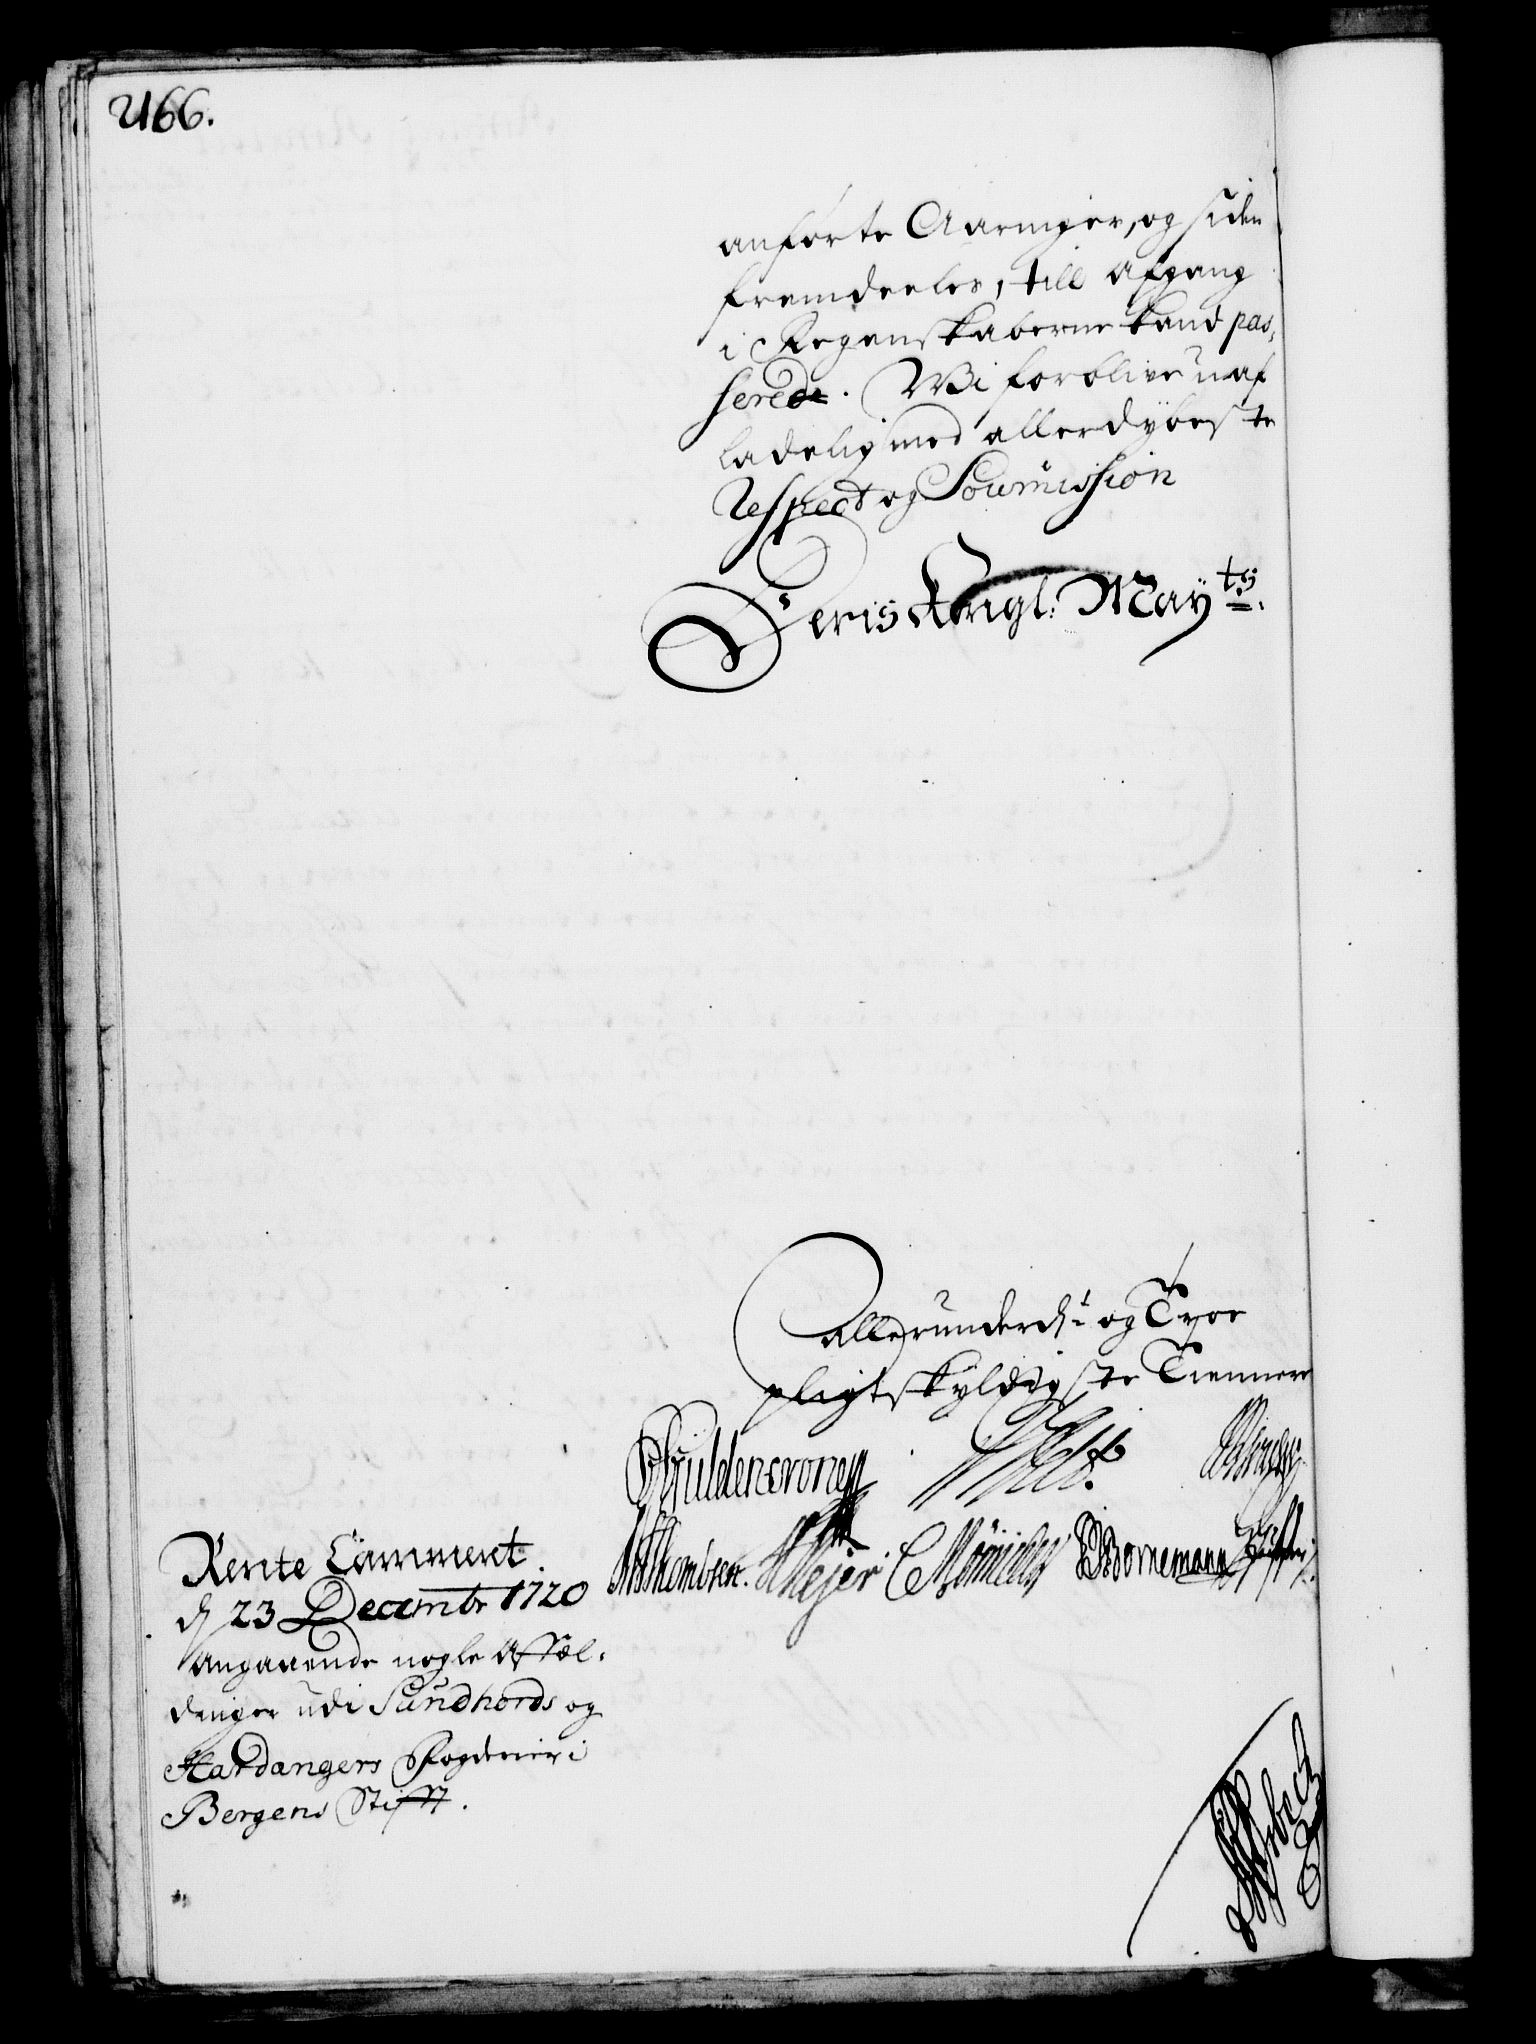 2166.
anførte Aaringer, og siden
fremdeeles, till Afgang
i Regenskaberne kand pas,
serede. Wi forblive uaf
ladelig med allerdÿbeste
Respect og Soumission
Deris Kongl: Maÿ.ts
allerunderd.e og Troe
pligtskÿldigste Tienner
Güldencrone
Thomsen. Meÿer C Bornemann
Rente Cammeret
d 23 Decembr 1720
Angaaende nogle Affæl-
dninger udi Sundhords og
Hardangers Fogderier i
Bergens Stifft.